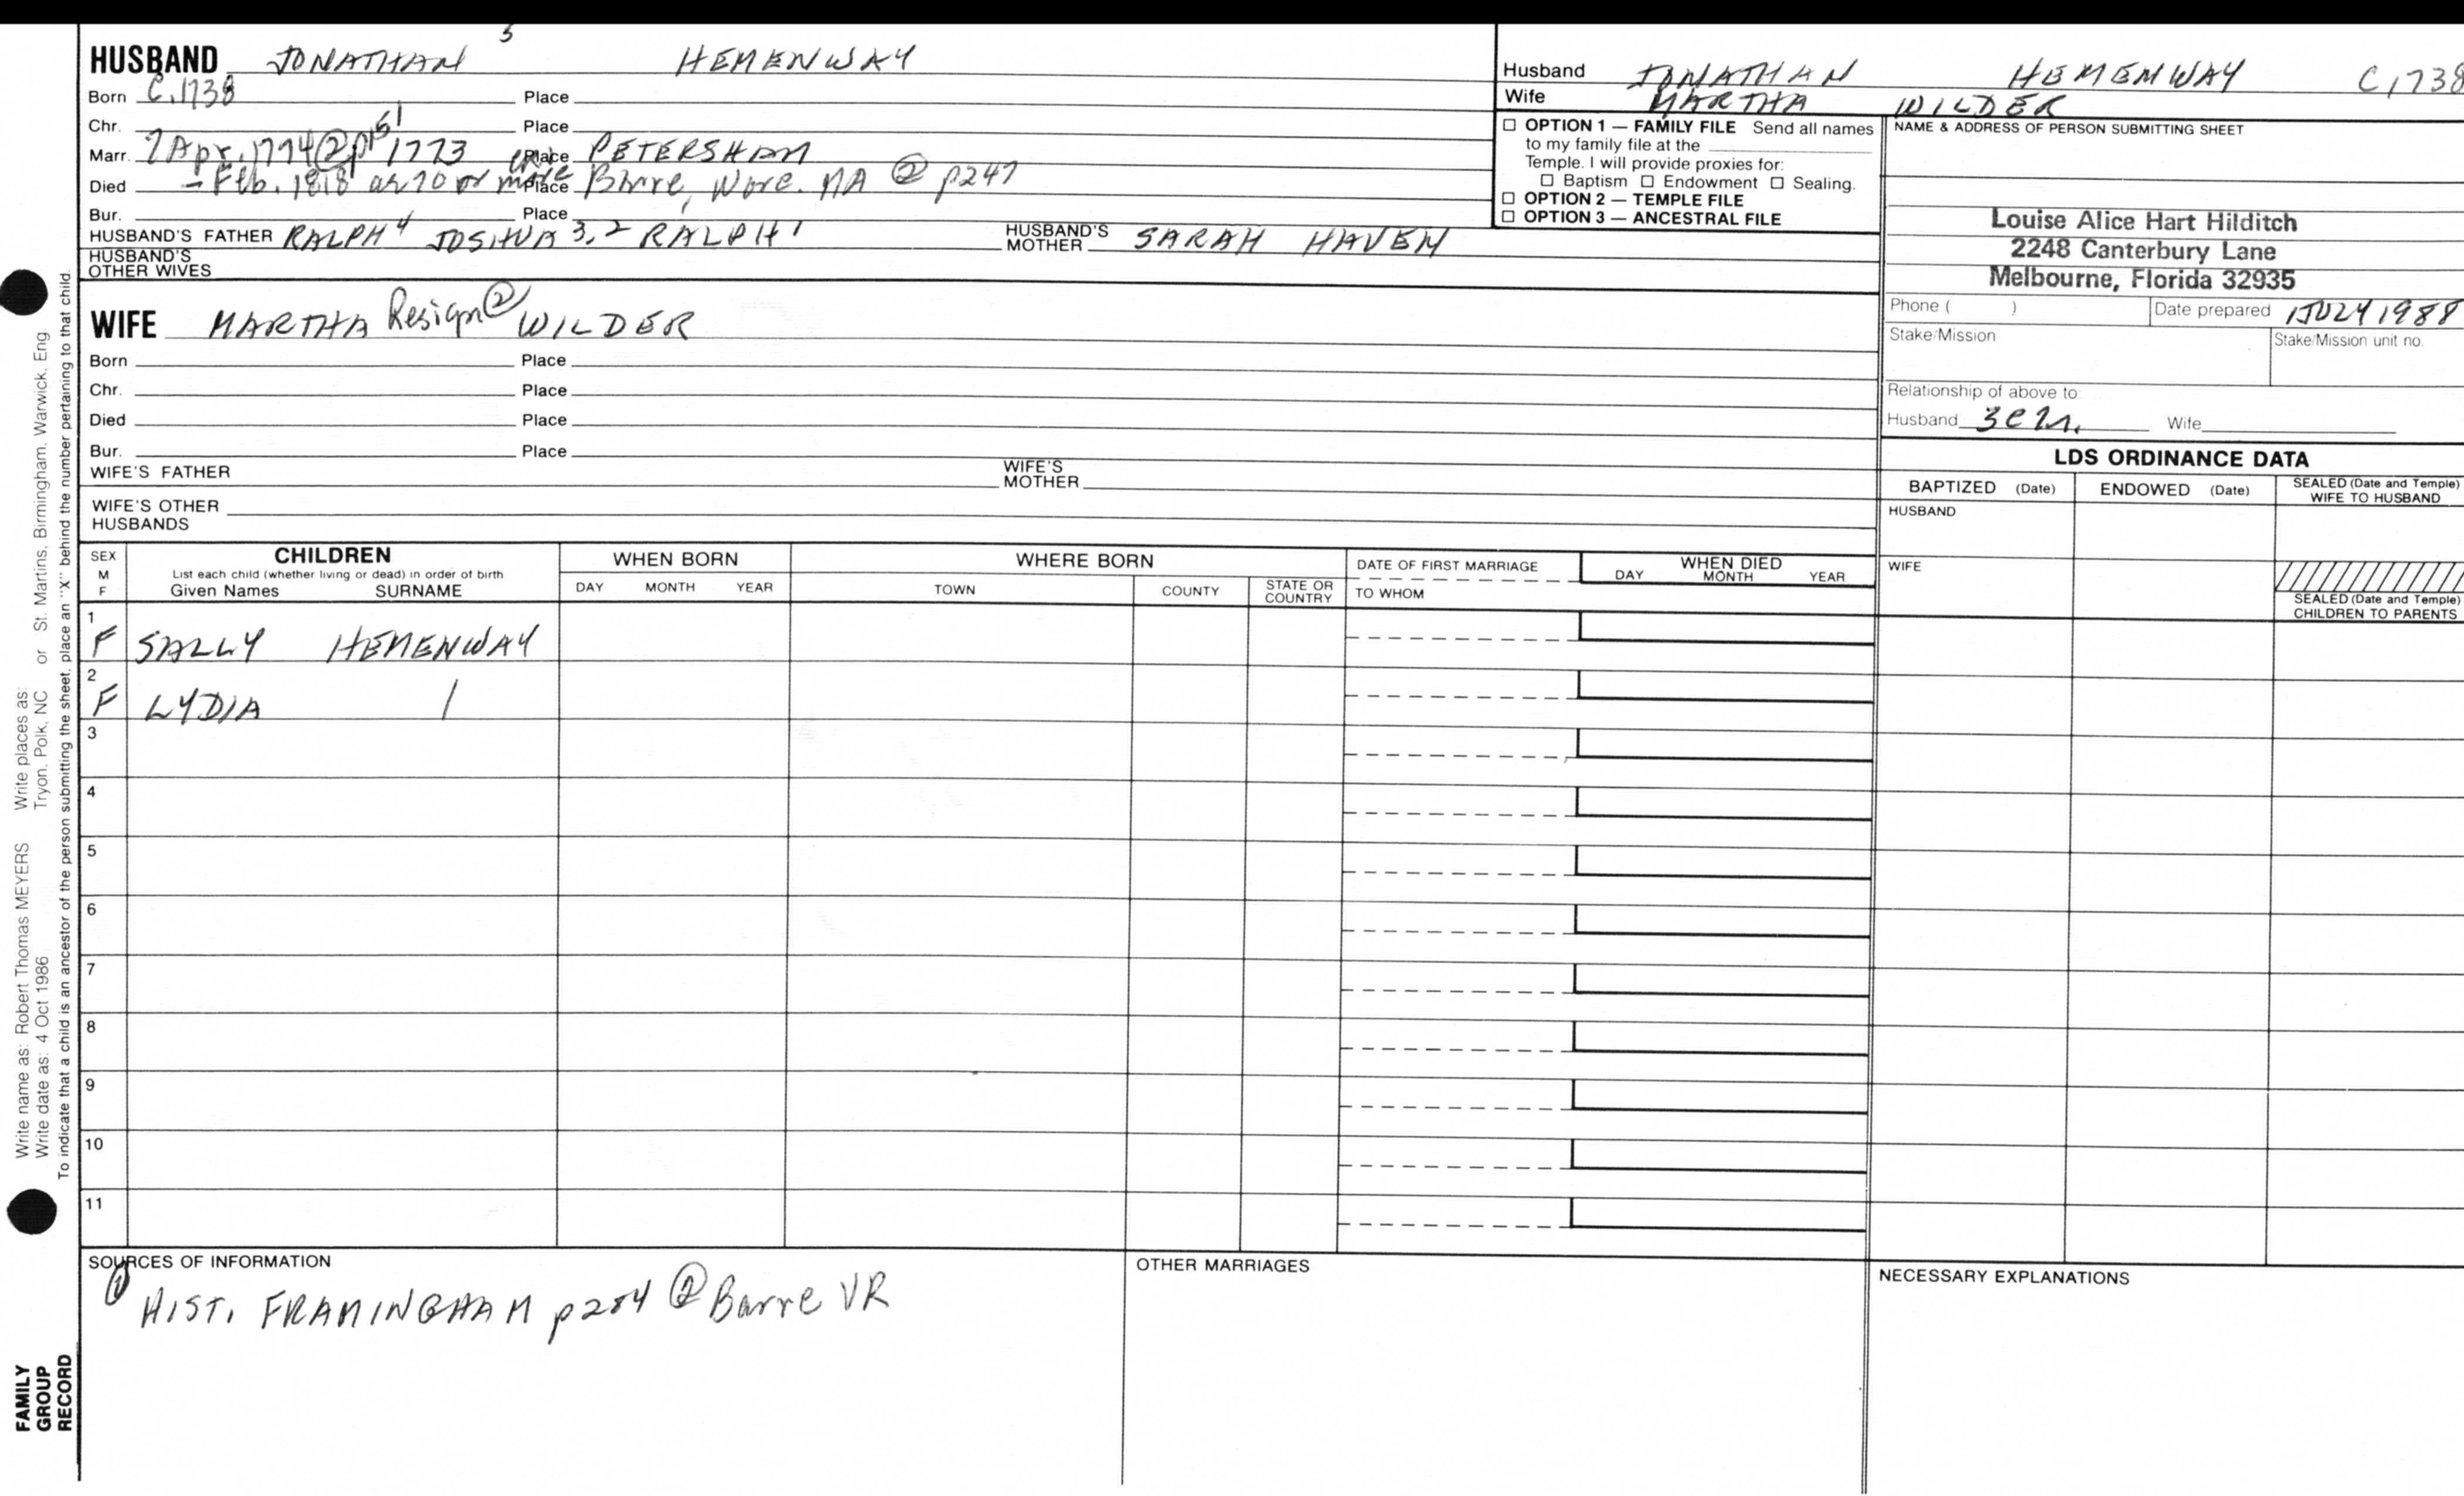 HUSBAND JONATHAN 5 HEMENWAY
Born C.1738 Place
Chr. Place
Marr. 7 Apr. 1774 @ p151 1773 Place PETERSHAM
Died - Feb. 1818 ae 70 or more Place Barre, Worc. MA @ p247
Bur. Place
HUSBAND'S FATHER RALPH 4 JOSHUA 3,2 RALPH 1 HUSBAND'S MOTHER SARAH HAVEN
HUSBAND'S OTHER WIVES
WIFE MARTHA Resign @ WILDER
Born Place
Chr. Place
Died Place
Bur. Place
WIFE'S FATHER WIFE'S MOTHER
WIFE'S OTHER HUSBANDS
Husband JONATHAN HEMENWAY C1738
Wife MARTHA WILDER
☐ OPTION 1 — FAMILY FILE Send all names
to my family file at the
Temple. I will provide proxies for:
☐ Baptism ☐ Endowment ☐ Sealing.
☐ OPTION 2 — TEMPLE FILE
☐ OPTION 3 — ANCESTRAL FILE
NAME & ADDRESS OF PERSON SUBMITTING SHEET
Louise Alice Hart Hilditch
2248 Canterbury Lane
Melbourne, Florida 32935
Phone ( ) Date prepared 1 JULY 1988
Stake/Mission Stake/Mission unit no.
Relationship of above to:
Husband Wife
LDS ORDINANCE DATA
BAPTIZED (Date) ENDOWED (Date) SEALED (Date and Temple) WIFE TO HUSBAND
HUSBAND
WIFE
SEALED (Date and Temple) CHILDREN TO PARENTS
SEX M F
CHILDREN
List each child (whether living or dead) in order of birth
Given Names SURNAME
WHEN BORN
DAY MONTH YEAR
WHERE BORN
TOWN COUNTY STATE OR COUNTRY
DATE OF FIRST MARRIAGE
TO WHOM
WHEN DIED
DAY MONTH YEAR
1 F SALLY HEMENWAY
2 F LYDIA /
3
4
5
6
7
8
9
10
11
SOURCES OF INFORMATION
① HIST. FRAMINGHAM p284 @ Barre VR
OTHER MARRIAGES
NECESSARY EXPLANATIONS
Write name as: Robert Thomas MEYERS Write places as:
Write date as: 4 Oct 1986 Tryon, Polk, NC or St. Martins, Birmingham, Warwick, Eng
To indicate that a child is an ancestor of the person submitting the sheet, place an "X" behind the number pertaining to that child.
FAMILY
GROUP
RECORD